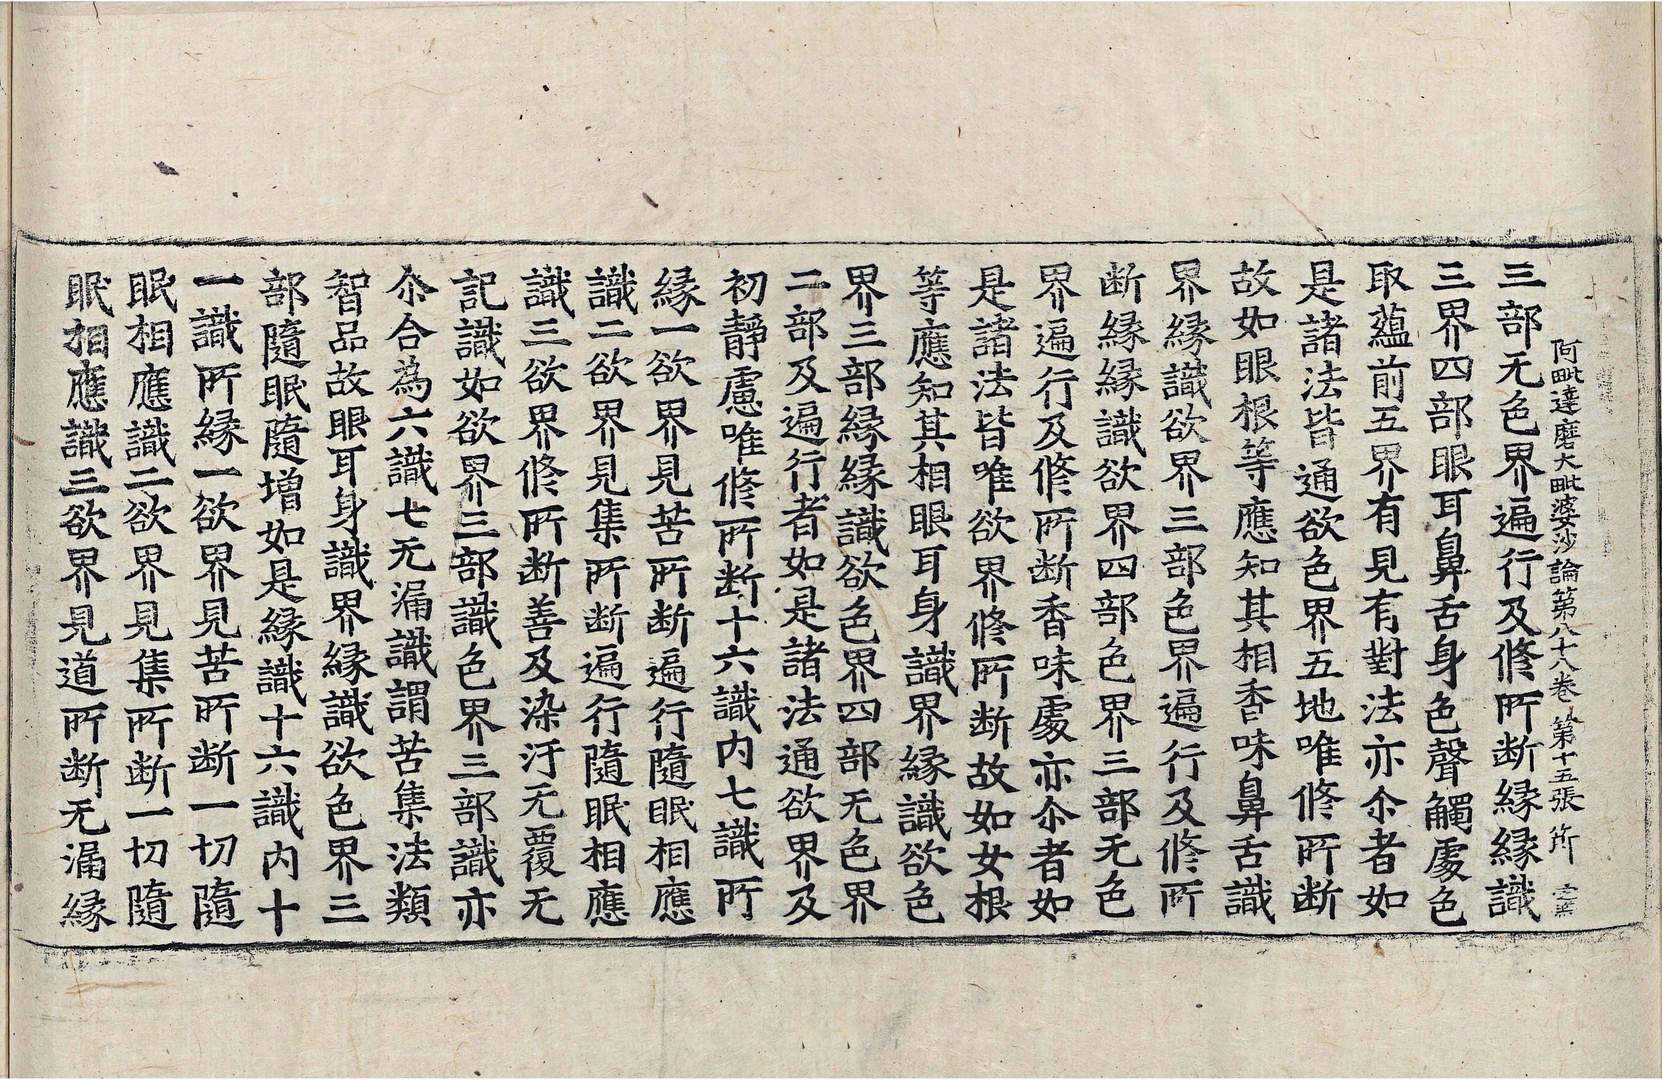 阿毗達磨大毗婆沙論第八十八卷 第十五張 所
三部无色界遍行及修所断緣緣識
三界四部眼耳鼻舌身色聲觸處色
取蘊前五界有見有對法亦尒者如
是諸法皆通欲色界五地唯修所断
故如眼根等應知其相香味鼻舌識
界緣識欲界三部色界遍行及修所
断緣緣識欲界四部色界三部无色
界遍行及修所断香味處亦尒者如
是諸法皆唯欲界修所断故如女根
等應知其相眼耳身識界緣識欲色
界三部緣緣識欲色界四部无色界
二部及遍行者如是諸法通欲界及
初靜慮唯修所断十六識内七識所
緣一欲界見苦所断遍行隨眠相應
識二欲界見集所断遍行隨眠相應
識三欲界修所断善及染汙无覆无
記識如欲界三部識色界三部識亦
尒合為六識七无漏識謂苦集法類
智品故眼耳身識界緣識欲色界三
部隨眠隨增如是緣識十六識内十
一識所緣一欲界見苦所断一切隨
眠相應識二欲界見集所断一切隨
眠相應識三欲界見道所断无漏緣